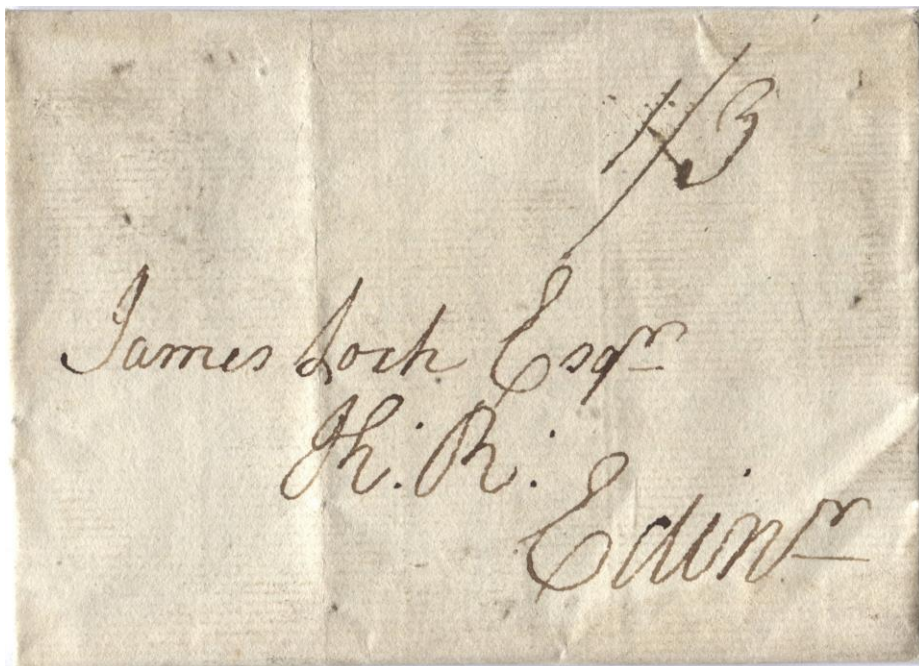 1/3
James Loch Esqr
K: R:
Edinr